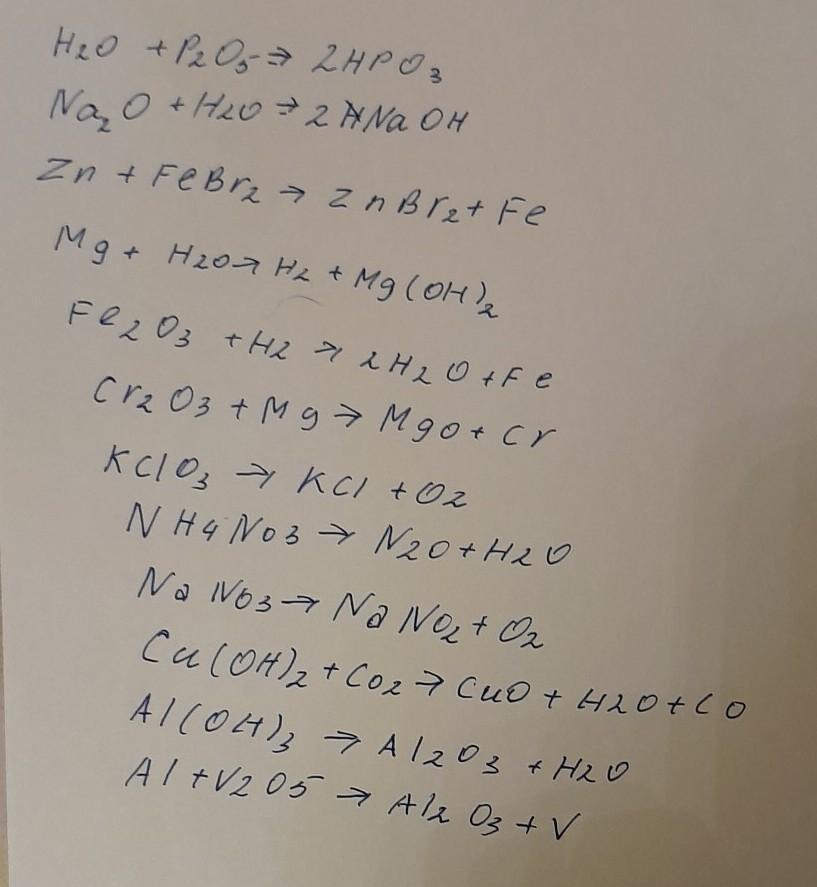 H2O + P2O5 ⇒ 2HPO3
Na2O + H2O → 2 NaOH
Zn + FeBr2 → ZnBr2 + Fe
Mg + H2O → H2 + Mg(OH)2
Fe2O3 + H2 → 2H2O + Fe
Cr2O3 + Mg → MgO + Cr
KClO3 → KCl + O2
NH4NO3 → N2O + H2O
NaNO3 → NaNO2 + O2
Cu(OH)2 + CO2 → CuO + H2O + CO
Al(OH)3 → Al2O3 + H2O
Al + V2O5 → Al2O3 + V